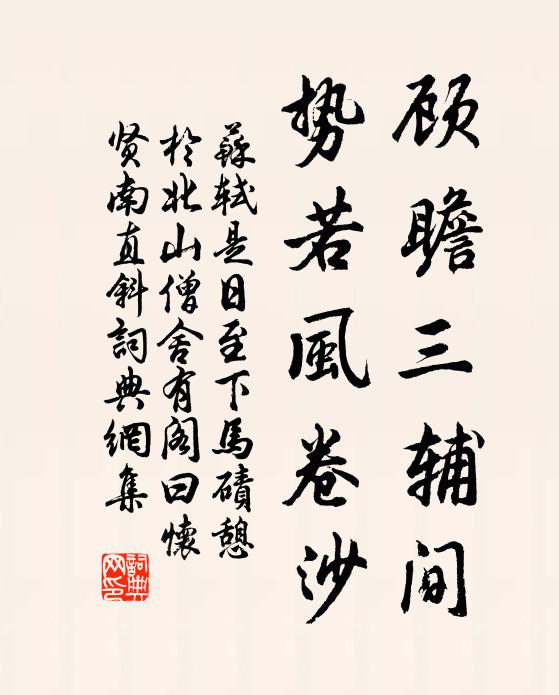 顾瞻三辅间
势若風卷沙
蘇轼是日至下馬碛憩
於北山僧舍有阁曰懷
贤南直斜詞典網集
詞典网印